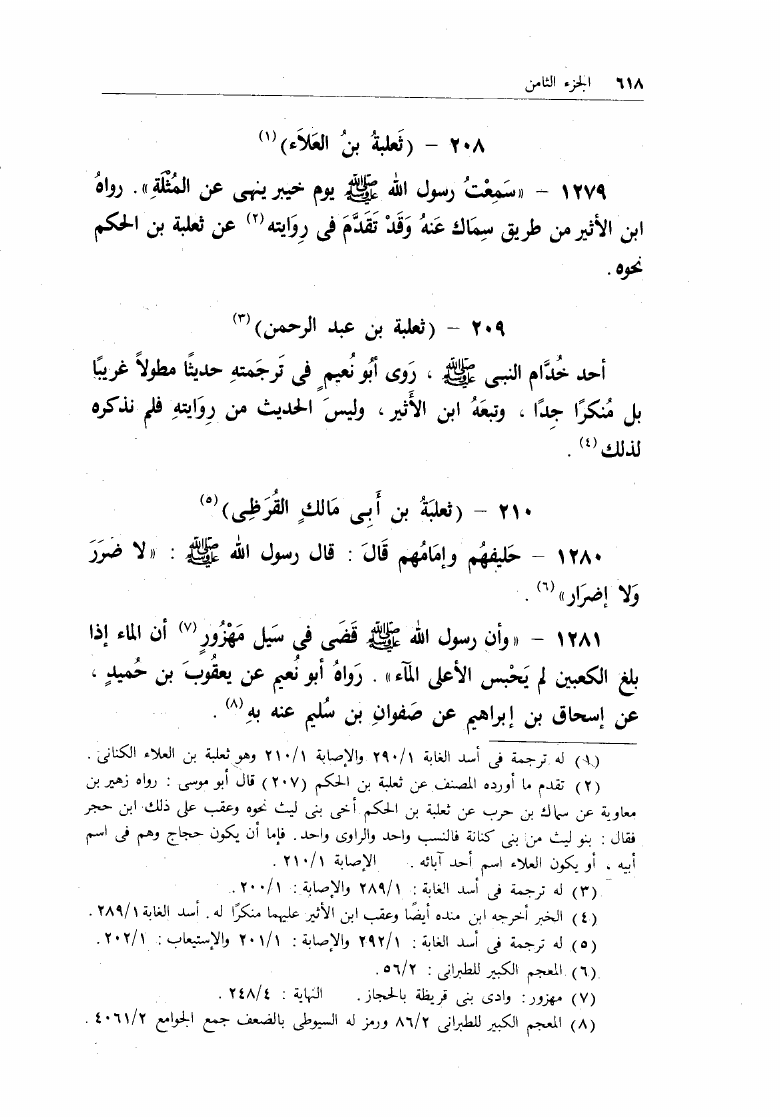 ٦١٨ الجزء الثامن
٢٠٨ – (ثَعلبةُ بنُ العَلاَء)(١)
١٢٧٩ – «سَمِعْتُ رسول الله ﷺ يوم خيبر ينهى عن المُثْلَةِ». رواهُ
ابن الأثير من طريق سِمَاك عَنهُ وَقَدْ تَقَدَّمَ فى رِوَايته(٢) عن ثعلبة بن الحكم
نحوه.
٢٠٩ – (ثعلبة بن عبد الرحمن)(٣)
أحد خُدَّام النبى ﷺ ، رَوى أبُو نُعيمٍ فى تَرجَمتهِ حديثًا مطولاً غريبًا
بل مُنكرًا جدًا ، وتبعَهُ ابن الأَثير ، وليسَ الحديث من رِوَايتهِ فلم نذكره
لذلك(٤) .
٢١٠ – (ثعلبَةُ بن أَبِى مَالكٍ القُرَظِى)(٥)
١٢٨٠ – حَليفهُم وإمَامُهم قَالَ : قال رسول الله ﷺ : «لا ضَرَرَ
وَلا إضرَار»(٦) .
١٢٨١ – «وأن رسول الله ﷺ قَضَى فى سَيل مَهْزُورٍ(٧) أن الماء إذا
بلغ الكعبين لم يَحْبس الأعلى المآء». رَواهُ أبو نُعيم عن يعقُوبَ بن حُميدٍ ،
عن إسحاق بن إبراهيم عن صَفوانِ بن سُليم عنه بهِ(٨) .
(١) له ترجمة فى أسد الغابة ٢٩٠/١ والإصابة ٢١٠/١ وهو ثعلبة بن العلاء الكنانى .
(٢) تقدم ما أورده المصنف عن ثعلبة بن الحكم (٢٠٧) قال أبو موسى : رواه زهير بن
معاوية عن سماك بن حرب عن ثعلبة بن الحكم أخى بنى ليث نحوه وعقب على ذلك ابن حجر
فقال : بنو ليث من بنى كنانة فالنسب واحد والراوى واحد. فإما أن يكون حجاج وهم فى اسم
أبيه ، أو يكون العلاء اسم أحد آبائه . الإصابة ٢١٠/١ .
(٣) له ترجمة فى أسد الغابة : ٢٨٩/١ والإصابة : ٢٠٠/١ .
(٤) الخبر أخرجه ابن منده أيضًا وعقب ابن الأثير عليهما منكرًا له . أسد الغابة ٢٨٩/١ .
(٥) له ترجمة فى أسد الغابة : ٢٩٢/١ والإصابة : ٢٠١/١ والإستيعاب : ٢٠٢/١ .
(٦) المعجم الكبير للطبرانى : ٥٦/٢ .
(٧) مهزور : وادى بنى قريظة بالحجاز . النهاية : ٢٤٨/٤ .
(٨) المعجم الكبير للطبرانى ٨٦/٢ ورمز له السيوطى بالضعف جمع الجوامع ٤٠٦١/٢ .